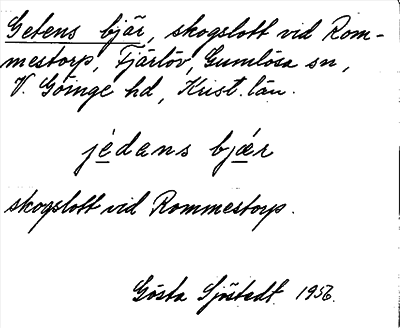 Getens bjär, skogslott vid Rom-
mestorp, Fjärlöv, Gumlösa sn,
V. Göinge hd, Krist. län.
jédans bjǽr
skogslott vid Rommestorp.
Gösta Sjöstedt 1956.